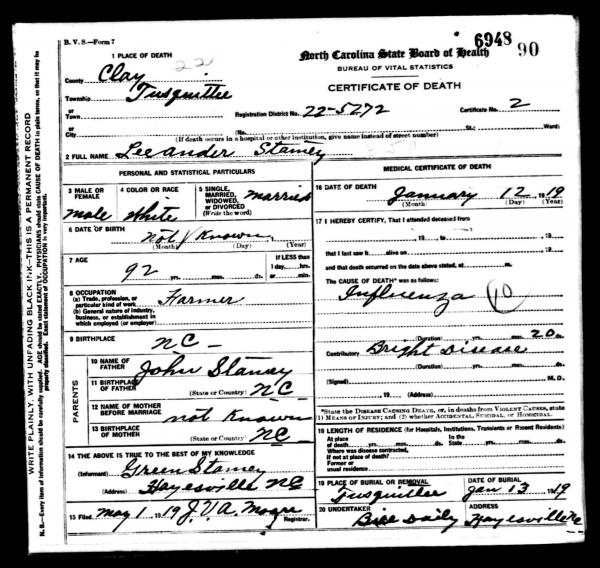 B. V. S.—Form 7
6948 90
1 PLACE OF DEATH
22
County Clay
Township Tusquittee
or
Town
or
City
North Carolina State Board of Health
BUREAU OF VITAL STATISTICS
CERTIFICATE OF DEATH
Registration District No. 22-5272 Certificate No. 2
(No. St.; Ward)
(If death occurs in a hospital or other institution, give name instead of street number)
2 FULL NAME Leeander Stamey
PERSONAL AND STATISTICAL PARTICULARS
3 MALE OR FEMALE male
4 COLOR OR RACE White
5 SINGLE, MARRIED, WIDOWED, OR DIVORCED (Write the word) married
6 DATE OF BIRTH not Known
(Month) (Day) (Year)
7 AGE 92 yrs. mos. ds.
If LESS than 1 day, hrs. or min.
8 OCCUPATION
(a) Trade, profession, or particular kind of work Farmer
(b) General nature of industry, business, or establishment in which employed (or employer)
9 BIRTHPLACE NC
PARENTS
10 NAME OF FATHER John Stamey
11 BIRTHPLACE OF FATHER (State or Country) NC
12 NAME OF MOTHER BEFORE MARRIAGE not Known
13 BIRTHPLACE OF MOTHER (State or Country) NC
14 THE ABOVE IS TRUE TO THE BEST OF MY KNOWLEDGE
(Informant) Green Stamey
(Address) Hayesville NC
15 Filed may 1 1919 J. V. A. Moore Registrar.
MEDICAL CERTIFICATE OF DEATH
16 DATE OF DEATH January 12 1919
(Month) (Day) (Year)
17 I HEREBY CERTIFY, That I attended deceased from
, 19 , to , 19
that I last saw h alive on , 19
and that death occurred on the date above stated, at m.
The CAUSE OF DEATH* was as follows:
Influenza 10
(Duration) yrs. mos. 20 ds.
Contributory Bright Disease
(Duration) yrs. mos. ds.
(Signed) M.D.
, 19 (Address)
*State the DISEASE CAUSING DEATH, or, in deaths from VIOLENT CAUSES, state
(1) MEANS OF INJURY; and (2) whether ACCIDENTAL, SUICIDAL, or HOMICIDAL.
18 LENGTH OF RESIDENCE (for Hospitals, Institutions, Transients or Recent Residents)
At place of death yrs. mos. ds. In the State yrs. mos. ds.
Where was disease contracted,
if not at place of death?
Former or
usual residence
19 PLACE OF BURIAL OR REMOVAL Tusquittee
DATE OF BURIAL Jan 13 1919
20 UNDERTAKER Bill Daily
ADDRESS Hayesville NC
WRITE PLAINLY, WITH UNFADING BLACK INK—THIS IS A PERMANENT RECORD
N. B.—Every item of information should be carefully supplied. AGE should be stated EXACTLY. PHYSICIANS should state CAUSE OF DEATH in plain terms, so that it may be
properly classified. Exact statement of OCCUPATION is very important.